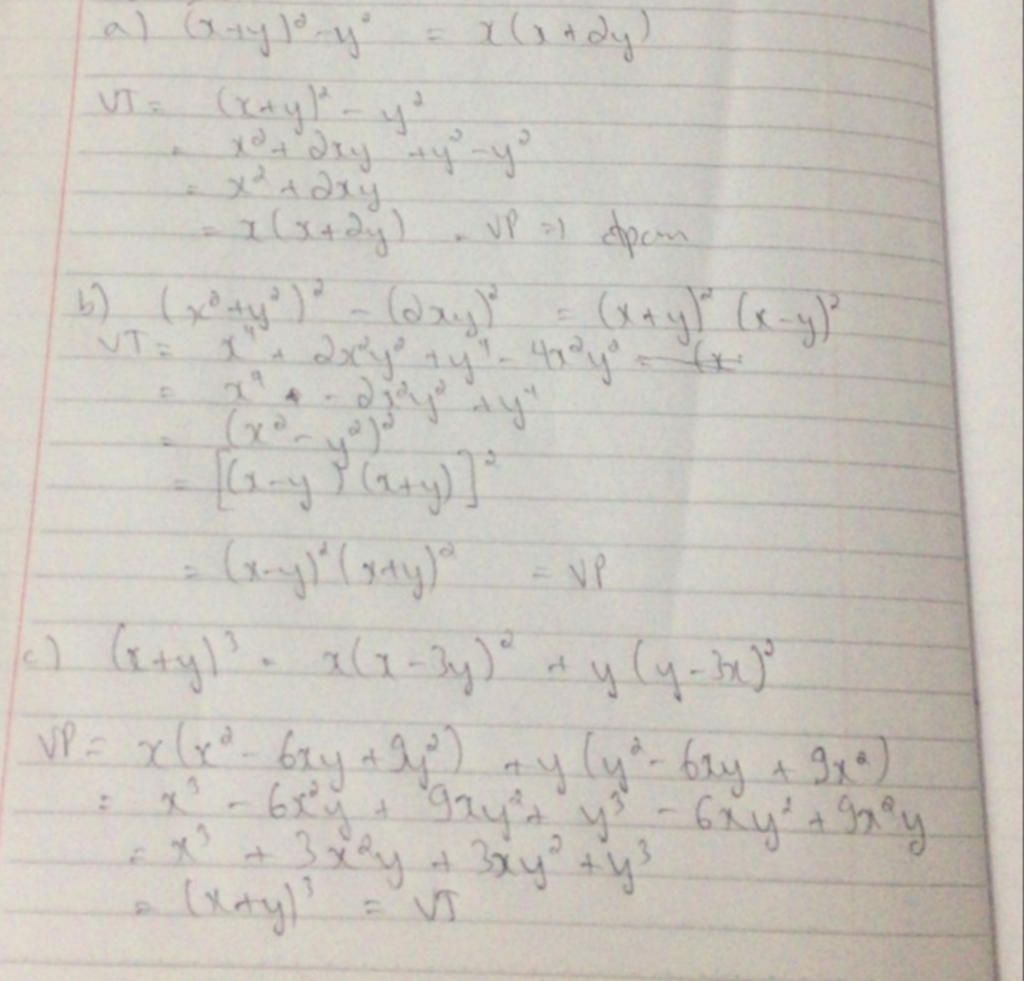 a) (x+y)² - y² = x(x+2y)
VT = (x+y)² - y²
= x² + 2xy + y² - y²
= x² + 2xy
= x(x+2y) = VP => đpcm
b) (x²+y²)² - (2xy)² = (x+y)² (x-y)²
VT = x⁴ + 2x²y² + y⁴ - 4x²y² = (x
= x⁴ - 2x²y² + y⁴
= (x² - y²)²
= [(x-y)(x+y)]²
= (x-y)² (x+y)² = VP
c) (x+y)³ = x(x-3y)² + y(y-3x)²
VP = x(x² - 6xy + 9y²) + y(y² - 6xy + 9x²)
= x³ - 6x²y + 9xy² + y³ - 6xy² + 9x²y
= x³ + 3x²y + 3xy² + y³
= (x+y)³ = VT